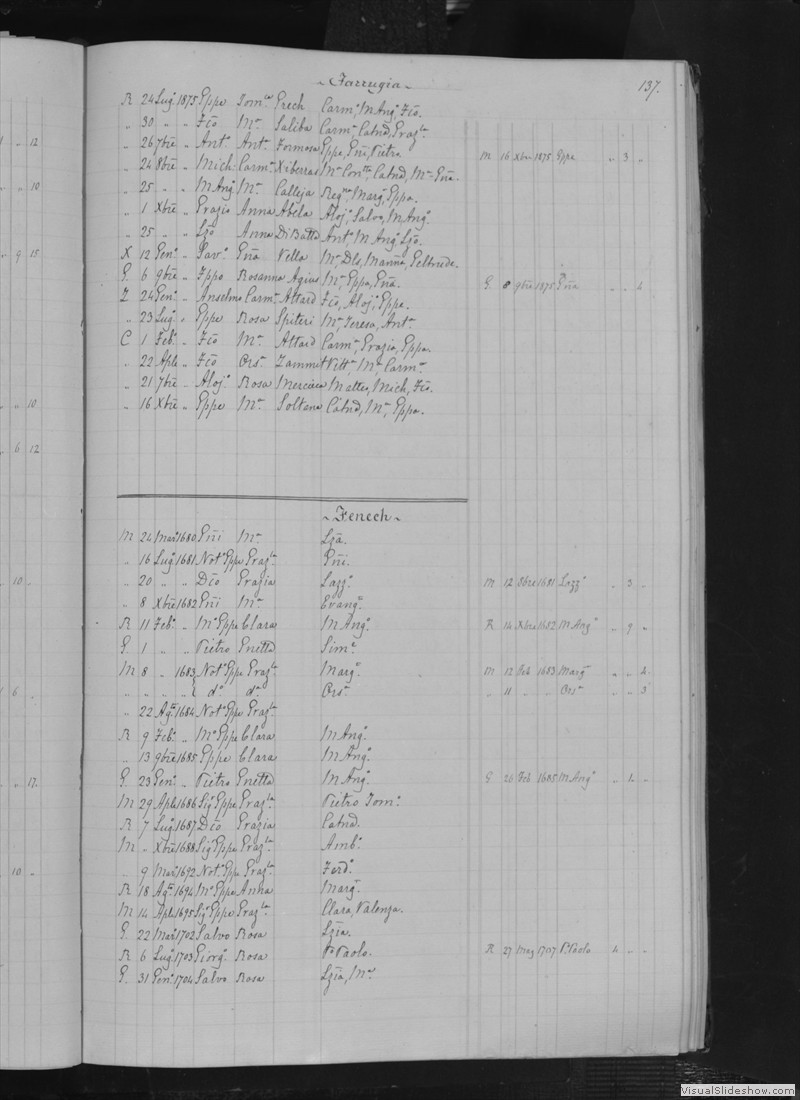 ~ Farrugia ~ 137.
R 24 Lug. 1875 Eppe Tom.ca Grech Carm.a M Ang.a Fc͞o.
„ 30 „ „ Fc͞o M.a Saliba Carm.a Catnd, Graz.la
„ 26 7bre „ Ant.o Ant.a Formosa Eppa, Gn͞i, Pietro M 16 Xbre 1875 Eppa „ 3 „
„ 24 8bre „ Mich. Carm.a Xiberras M.a Con.tta Catnd, M.a Gn͞a.
„ 25 „ „ M Ang.o M.a Calleja Reg.na Marg.a Eppa.
„ 1 Xbre „ Grazio Anna Abela Aloj.o Salvo, M Ang.o
„ 25 „ „ Lz͞o Anna DiBatta Ant.o M Ang.o Lz͞o.
X 12 Gen.o „ Sav.o Gn͞a Vella M.a Dls, Marn͞a, Geltrude.
G 6 9bre „ Fppo Rosanna Agius M.a Eppa, Gn͞a. G 8 9bre 1875 Gn͞a „ „ 4
Z 24 Gen.o „ Anselmo Carm.a Attard Fc͞o, Aloj.o Eppa.
„ 23 Lug. „ Eppe Rosa Spiteri M.a Teresa, Ant.a
C 1 Feb.o „ Fc͞o M.a Attard Carm.a Grazia, Eppa.
„ 22 Aple „ Fc͞o Ors.a Zammit Vitt.a M.a Carm.a
„ 21 7bre „ Aloj.o Rosa Mercieca Matteo, Mich, Fc͞o.
„ 16 Xbre „ Eppe M.a Soltana Catnd, M.a Eppa.
~ Fenech ~
M 24 Mar. 1680 Gn͞i M.a Lz͞a.
„ 16 Lug. 1681 Not.o Eppe Graz.la Gn͞i.
„ 20 „ „ Dc͞o Grazia Lazz.o M 12 8bre 1681 Lazz.o „ 3 „
„ 8 Xbre 1682 Gn͞i M.a Evang.ta
R 11 Feb.o „ M.o Eppe Clara M Ang.o R 14 Xbre 1682 M Ang.o „ 9 „
G 1 „ „ Pietro Gnetta Sim.e
M 8 „ 1683 Not.o Eppe Graz.la Marg.a M 12 Feb 1683 Marg.a „ „ 4
„ „ „ „ d.o d.a Ors.a „ 11 „ „ Ors.a „ „ 3
„ 22 Ag.o 1684 Not.o Eppe Graz.la
R 9 Feb.o „ M.o Eppe Clara M Ang.o
„ 13 9bre 1685 Eppe Clara M Ang.o
G 23 Gen.o „ Pietro Gnetta M Ang.o G 26 Feb 1685 M Ang.o „ 1 „
M 29 Aple 1686 Sig.r Eppe Graz.la Pietro Tom.o
R 7 Lug. 1687 Dc͞o Grazia Catnd.
M „ Xbre 1688 Sig.r Eppe Graz.la Amb.o
„ 9 Mar. 1692 Not.o Eppe Graz.la Ferd.o
R 18 Ag.o 1694 M.o Eppe Anna Marg.a
M 14 Aple 1695 Sig.r Eppe Graz.la Clara, Valenza.
G 22 Mar. 1702 Salvo Rosa Lz͞ia.
R 6 Lug. 1703 Giorg.o Rosa P.o Paolo. R 27 Mag 1707 P. Paolo 4 „ „
G 31 Gen.o 1704 Salvo Rosa Lz͞ia, M.a
12
10
9 15
10
6 12
10
6
17
10
VisualSlideshow.com